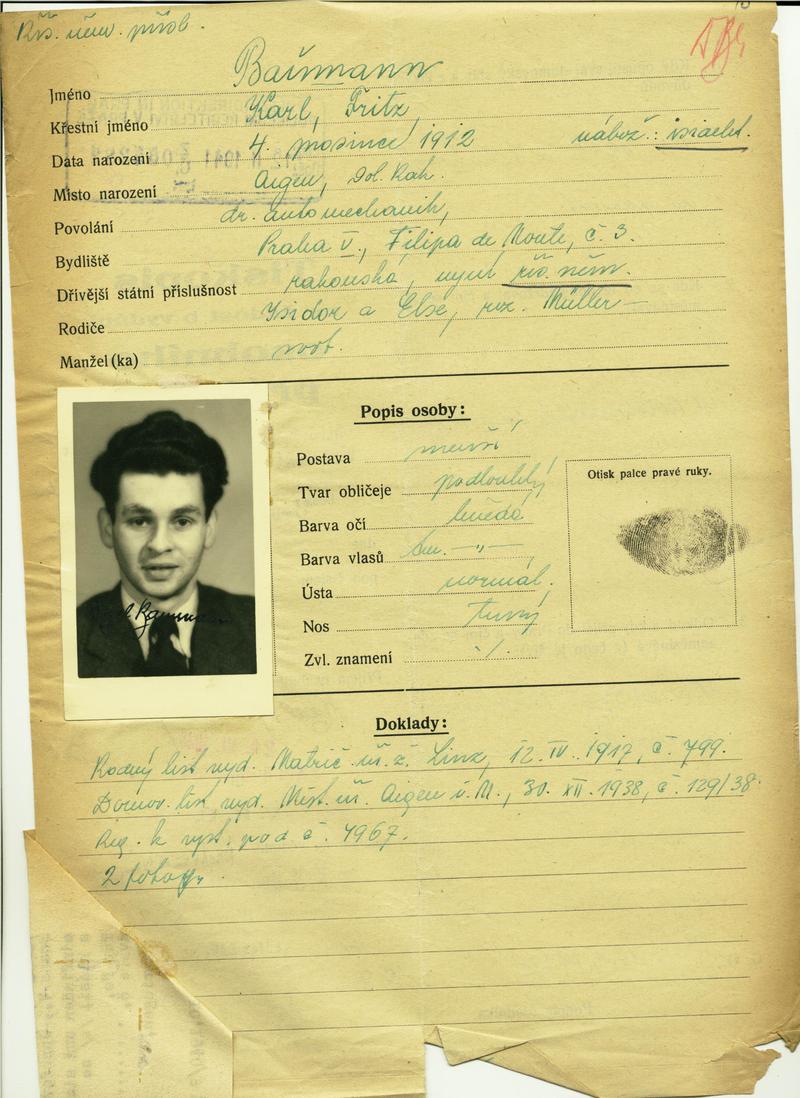 Řís. něm. přísl.
Jméno Baümann
Křestní jméno Karl, Fritz
Data narození 4. prosince 1912 nábož.: israelit.
Místo narození Aigen, Dol. Rak.
Povolání dr. automechanik,
Bydliště Praha V., Filipa de Monte, č. 3.
Dřívější státní příslušnost rakouská, nyní říš. něm.
Rodiče Isidor a Else, roz. Müller —
Manžel (ka) svob.
Popis osoby:
Postava menší
Tvar obličeje podlouhlý
Barva očí hnědá
Barva vlasů tm. —„—
Ústa normál.
Nos
Zvl. znamení ./.
Otisk palce pravé ruky.
Doklady:
Rodný list vyd. Matrič. úř. ž. Linz, 12. IV. 1917, č. 799.
Domov. list, vyd. Měst. úř. Aigen i. M., 30. XII. 1938, č. 129/38.
Reg. k vyst. pod č. 4967.
2 fotogr.